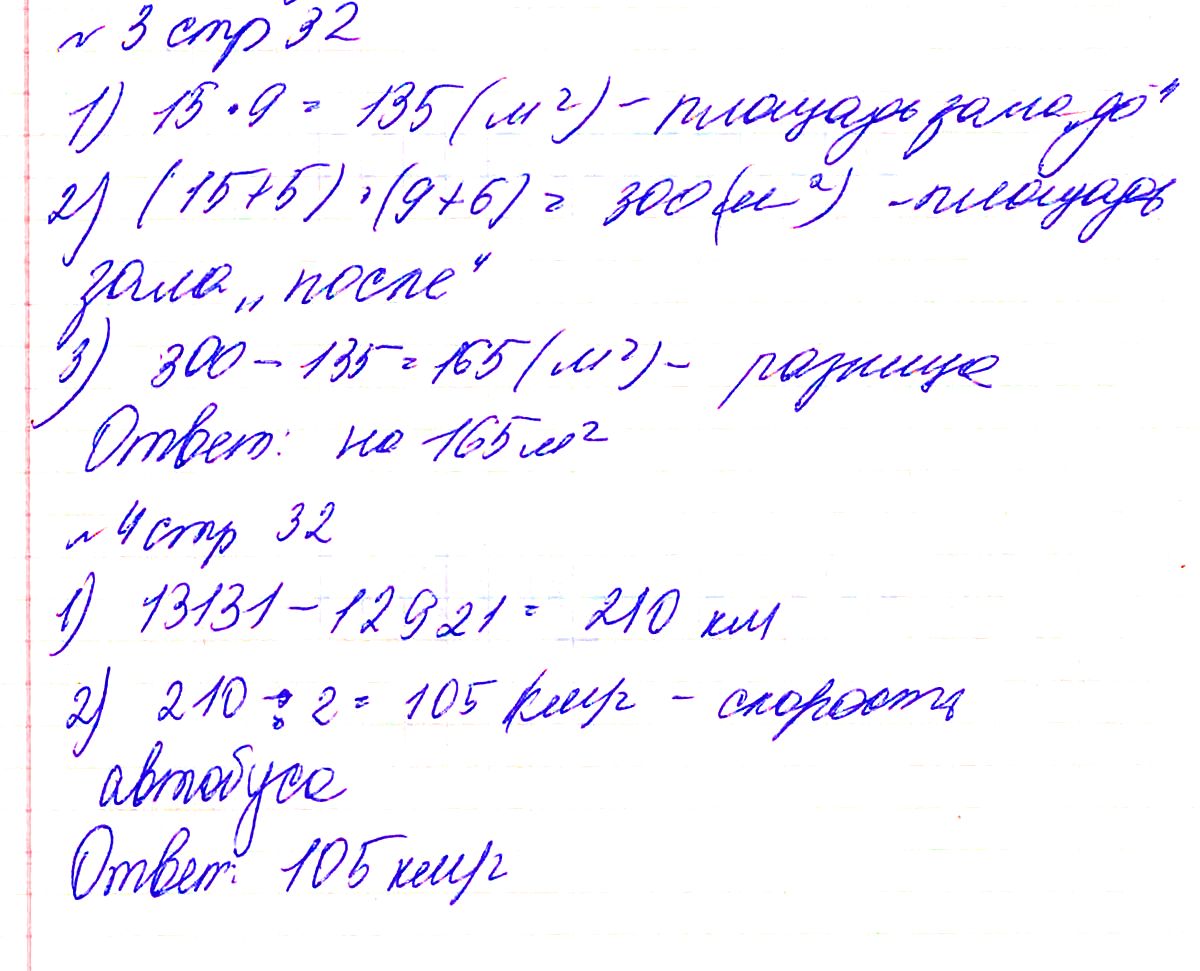 № 3 стр 32
1) 15 · 9 = 135 (м²) – площадь зала „до“
2) (15+5) · (9+6) = 300 (м²) – площадь
зала „после“
3) 300 – 135 = 165 (м²) – разница
Ответ: на 165 м²
№ 4 стр 32
1) 13131 – 12921 = 210 км
2) 210 : 2 = 105 км/ч – скорость
автобуса
Ответ: 105 км/ч